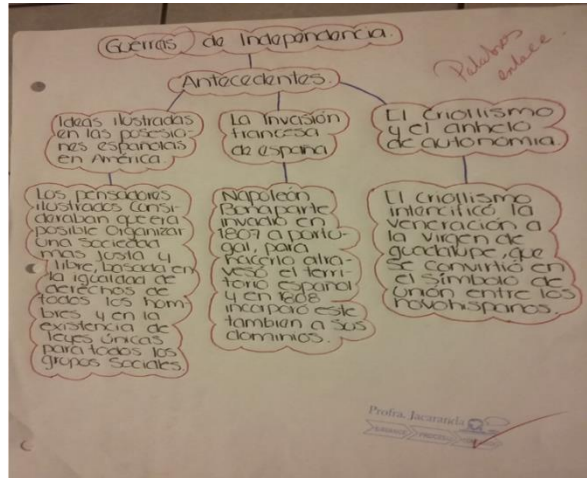 Guerras de Independencia.
Palabras
enlace.
Antecedentes.
Ideas ilustradas
en las posesio-
nes españolas
en América.
La Invasión
francesa
de españa
El criollismo
y el anhelo
de autonomia.
Los pensadores
ilustrados consi-
deraban que era
posible organizar
una sociedad
mas justa y
libre, basada en
la igualdad de
derechos de
todos los hom
bres y en la
existencia de
leyes únicas
para todos los
grupos sociales.
Napoleón
Bonaparte
invadió en
1807 a portu-
gal, para
hacerlo atra-
vesó el terri-
torio español
y en 1808
incorporó este
tambien a sus
dominios.
El criollismo
intencificó la
veneración a
la virgen de
guadalupe, que
se convirtió en
el símbolo de
unión entre los
novohispanos.
Profra. Jacaranda